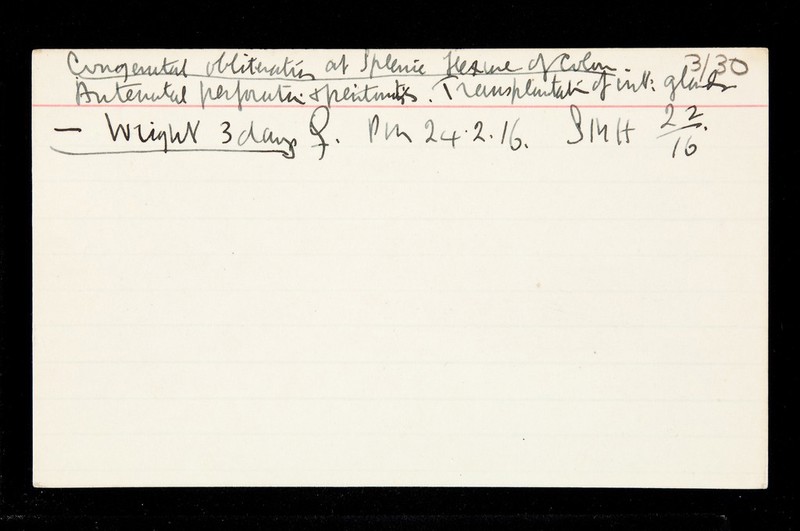 Congenital obliteration at Splenic flexure of Colon. 3/30
Antenatal perforation & peritonitis. Transplantation of int: glands
— Wright 3 days ♀. PM 24.2.16. SMH 22/16.